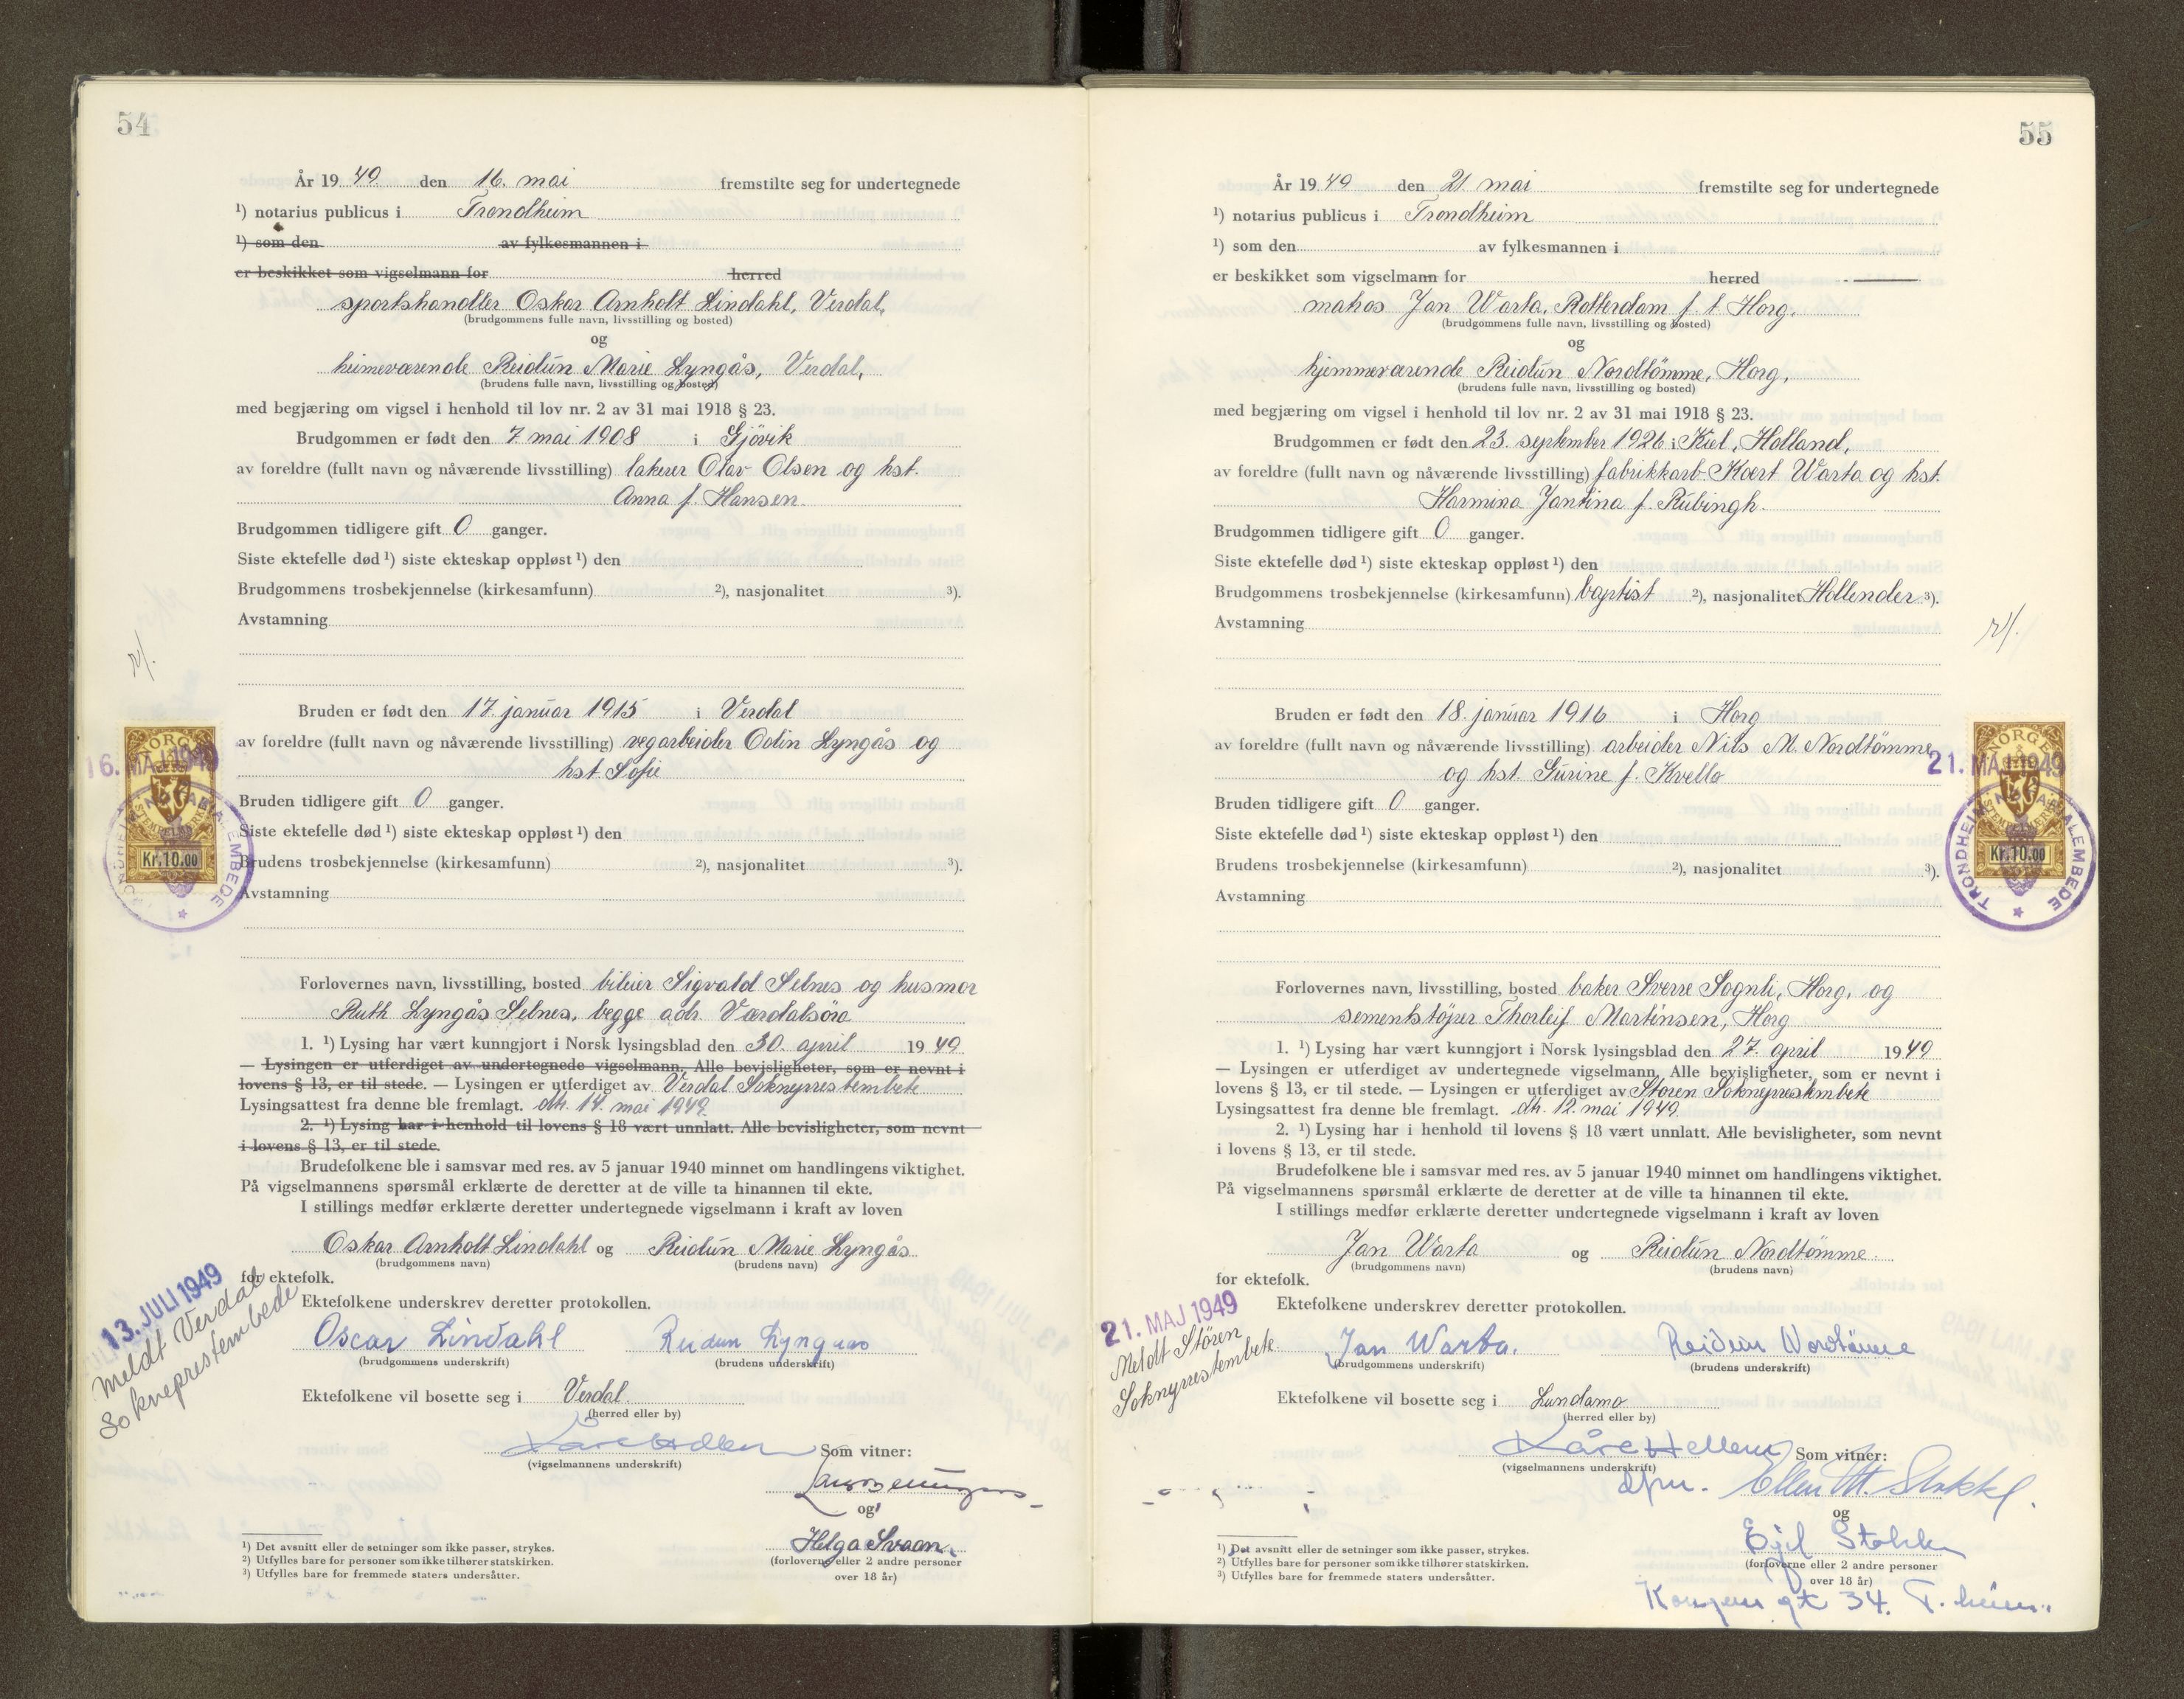 54
År 19 49 den 16. mai fremstilte seg for undertegnede
¹) notarius publicus i Trondheim
¹) som den av fylkesmannen i
er beskikket som vigselmann for herred
sportshandler Oskar Arnholt Lindahl, Verdal,
(brudgommens fulle navn, livsstilling og bosted)
og
heimeværende Reidun Marie Lyngås, Verdal,
(brudens fulle navn, livsstilling og bosted)
med begjæring om vigsel i henhold til lov nr. 2 av 31 mai 1918 § 23.
Brudgommen er født den 7. mai 1908 i Gjövik
av foreldre (fullt navn og nåværende livsstilling) lakerer Olav Olsen og hst.
Anna f. Hansen.
Brudgommen tidligere gift 0 ganger.
Siste ektefelle død ¹) siste ekteskap oppløst ¹) den
Brudgommens trosbekjennelse (kirkesamfunn) ²), nasjonalitet ³).
Avstamning
Bruden er født den 17. januar 1915 i Verdal
av foreldre (fullt navn og nåværende livsstilling) vegarbeider Odin Lyngås og
hst. Sofie
Bruden tidligere gift 0 ganger.
Siste ektefelle død ¹) siste ekteskap oppløst ¹) den
Brudens trosbekjennelse (kirkesamfunn) ²), nasjonalitet ³).
Avstamning
16. MAJ 1949
NORGE
Kr.10.00
Forlovernes navn, livsstilling, bosted bileier Sigvald Selnes og husmor
Ruth Lyngås Selnes, begge adr. Værdalsöra
1. ¹) Lysing har vært kunngjort i Norsk lysingsblad den 30. april 19 49
— Lysingen er utferdiget av undertegnede vigselmann. Alle bevisligheter, som er nevnt i
lovens § 13, er til stede. — Lysingen er utferdiget av Verdal Sokneprestembete
Lysingsattest fra denne ble fremlagt. dtr. 14. mai 1949.
2. ¹) Lysing har i henhold til lovens § 18 vært unnlatt. Alle bevisligheter, som nevnt
i lovens § 13, er til stede.
Brudefolkene ble i samsvar med res. av 5 januar 1940 minnet om handlingens viktighet.
På vigselmannens spørsmål erklærte de deretter at de ville ta hinannen til ekte.
I stillings medfør erklærte deretter undertegnede vigselmann i kraft av loven
Oskar Arnholt Lindahl og Reidun Marie Lyngås
(brudgommens navn) (brudens navn)
for ektefolk.
13. JULI 1949
Meldt Verdal
Sokneprestembede
Ektefolkene underskrev deretter protokollen.
Oscar Lindahl Reidun Lyngaas
(brudgommens underskrift) (brudens underskrift)
Ektefolkene vil bosette seg i Verdal.
(herred eller by)
Kåre Hellem Som vitner:
(vigselmannens underskrift)
og
Helga Svaan.
(forloverne eller 2 andre personer
over 18 år)
¹) Det avsnitt eller de setninger som ikke passer, strykes.
²) Utfylles bare for personer som ikke tilhører statskirken.
³) Utfylles bare for fremmede staters undersåtter.
55
År 19 49 den 21. mai fremstilte seg for undertegnede
¹) notarius publicus i Trondheim
¹) som den av fylkesmannen i
er beskikket som vigselmann for herred
matros Jan Warta, Rotterdam f. t. Horg.
(brudgommens fulle navn, livsstilling og bosted)
og
hjemmeværende Reidun Nordtömme, Horg,
(brudens fulle navn, livsstilling og bosted)
med begjæring om vigsel i henhold til lov nr. 2 av 31 mai 1918 § 23.
Brudgommen er født den 23. september 1926 i Kiel, Holland,
av foreldre (fullt navn og nåværende livsstilling) fabrikkarb. Koert Warta og hst.
Harmina Jantina f. Rubingh.
Brudgommen tidligere gift 0 ganger.
Siste ektefelle død ¹) siste ekteskap oppløst ¹) den
Brudgommens trosbekjennelse (kirkesamfunn) baptist ²), nasjonalitet Hollender ³).
Avstamning
Bruden er født den 18. januar 1916 i Horg
av foreldre (fullt navn og nåværende livsstilling) arbeider Nils M. Nordtömme
og hst. Gurine f. Kvello
Bruden tidligere gift 0 ganger.
Siste ektefelle død ¹) siste ekteskap oppløst ¹) den
Brudens trosbekjennelse (kirkesamfunn) ²), nasjonalitet ³).
Avstamning
21. MAJ 1949
NORGE
Kr.10.00
Forlovernes navn, livsstilling, bosted baker Sverre Sognli, Horg, og
sementstöper Thorleif Martinsen, Horg
1. ¹) Lysing har vært kunngjort i Norsk lysingsblad den 27. april 19 49
— Lysingen er utferdiget av undertegnede vigselmann. Alle bevisligheter, som er nevnt i
lovens § 13, er til stede. — Lysingen er utferdiget av Stören Sokneprestembete
Lysingsattest fra denne ble fremlagt. dtr. 12. mai 1949.
2. ¹) Lysing har i henhold til lovens § 18 vært unnlatt. Alle bevisligheter, som nevnt
i lovens § 13, er til stede.
Brudefolkene ble i samsvar med res. av 5 januar 1940 minnet om handlingens viktighet.
På vigselmannens spørsmål erklærte de deretter at de ville ta hinannen til ekte.
I stillings medfør erklærte deretter undertegnede vigselmann i kraft av loven
Jan Warta og Reidun Nordtömme.
(brudgommens navn) (brudens navn)
for ektefolk.
21. MAJ 1949
Meldt Stören
Sokneprestembete
Ektefolkene underskrev deretter protokollen.
Jan Warta. Reidun Nordtömme
(brudgommens underskrift) (brudens underskrift)
Ektefolkene vil bosette seg i Lundamo
(herred eller by)
Kåre Hellem Som vitner:
(vigselmannens underskrift)
Ellen M.
og
Egil
(forloverne eller 2 andre personer
over 18 år)
Kongens gt 34. T.heim.
¹) Det avsnitt eller de setninger som ikke passer, strykes.
²) Utfylles bare for personer som ikke tilhører statskirken.
³) Utfylles bare for fremmede staters undersåtter.
TRONDHEIM NOTARIALEMBEDE